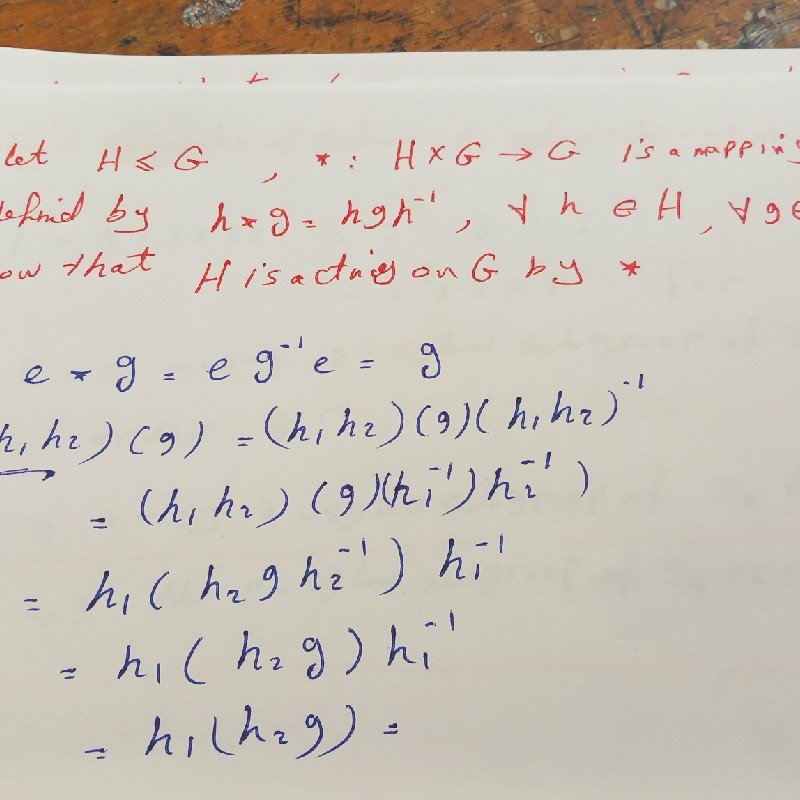 let H ≤ G , * : H × G → G is a mapping
defined by h * g = hgh⁻¹ , ∀ h ∈ H , ∀ g ∈
ow that H is acting on G by *
e * g = e g⁻¹ e = g
h₁ h₂ ) ( g ) = ( h₁ h₂ ) ( g ) ( h₁ h₂ )⁻¹
= ( h₁ h₂ ) ( g ) ( h₁⁻¹ ) h₂⁻¹ )
= h₁ ( h₂ g h₂⁻¹ ) h₁⁻¹
= h₁ ( h₂ g ) h₁⁻¹
= h₁ ( h₂ g ) =